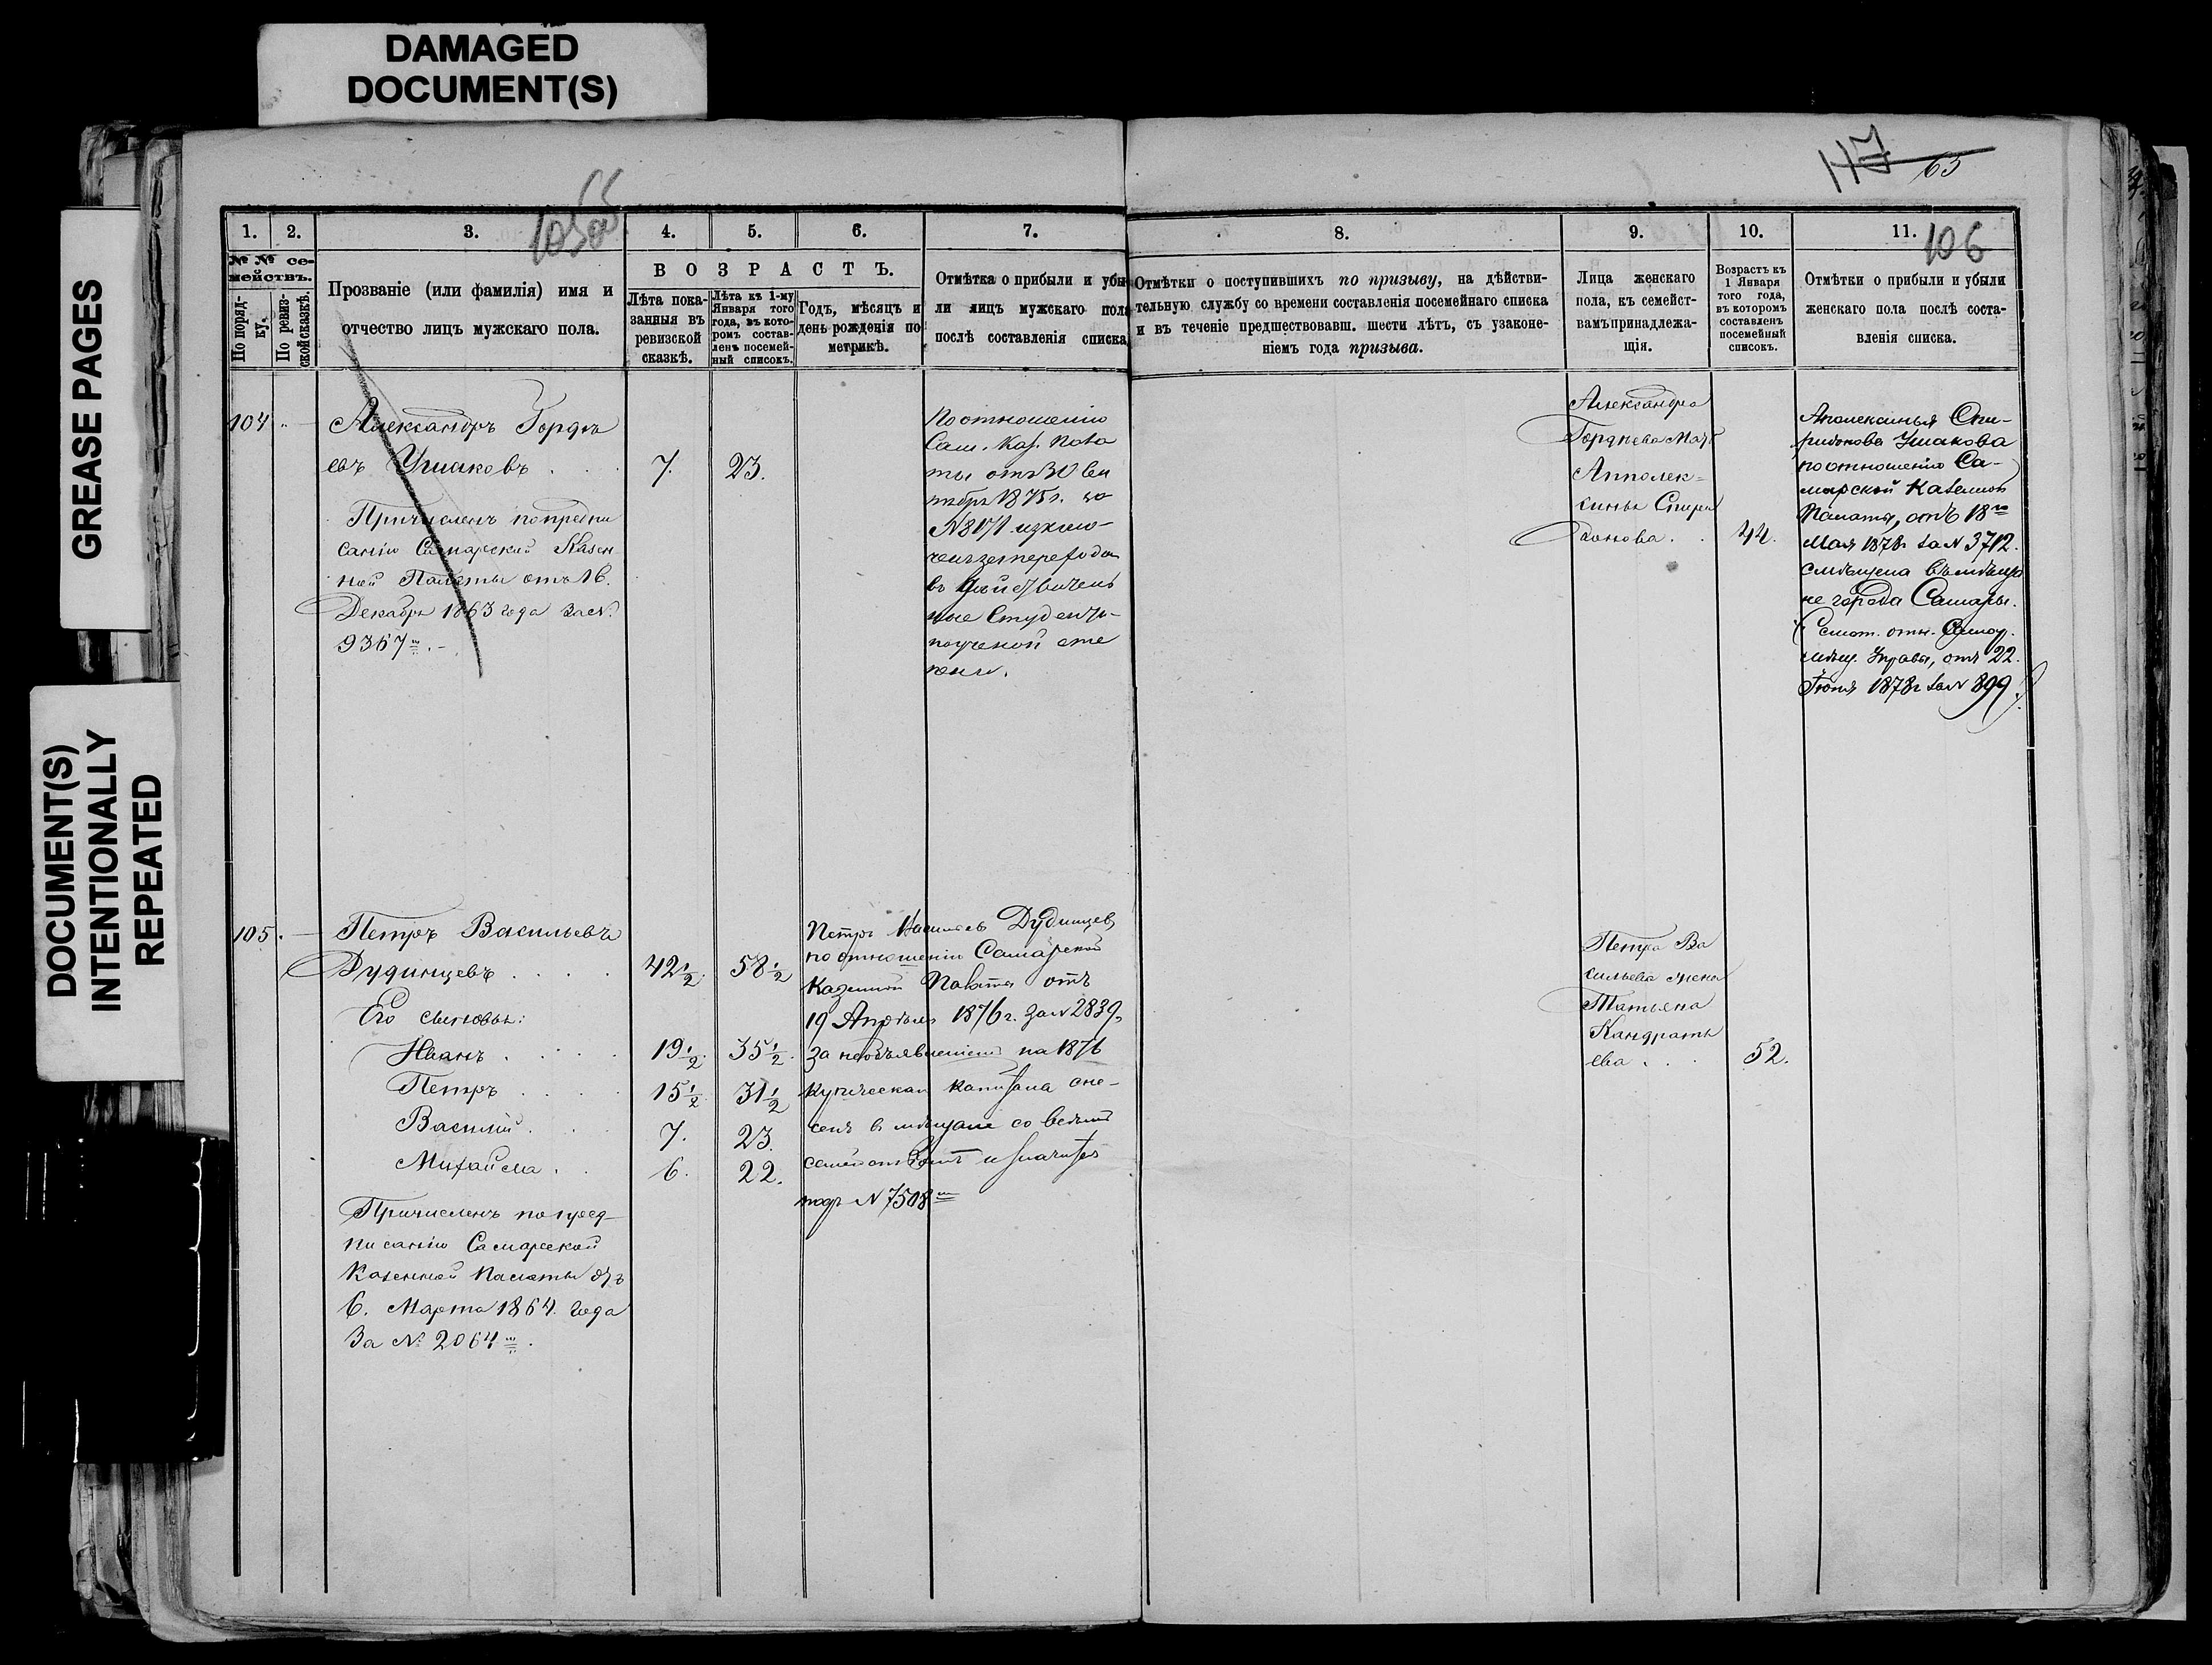 DAMAGED
DOCUMENT(S)
GREASE PAGES
DOCUMENT(S)
INTENTIONALLY
REPEATED
63
106
1.
2.
3.
4.
5.
6.
7.
8.
9.
10.
11.
№ № се-
мействъ.
По поряд-
ку.
По ревиз-
ской сказкѣ.
Прозваніе (или фамилія) имя и
отчество лицъ мужскаго пола.
ВОЗРАСТЪ.
Лѣта пока-
занныя въ
ревизской
сказкѣ.
Лѣта къ 1-му
Января того
года, въ кото-
ромъ состав-
ленъ посемей-
ный списокъ.
Годъ, мѣсяцъ и
день рожденія по
метрикѣ.
Отмѣтка о прибыли и убы
ли лицъ мужскаго пола
послѣ составленія списка
Отмѣтки о поступившихъ по призыву, на дѣйстви-
тельную службу со времени составленія посемейнаго списка
и въ теченіе предшествовавш. шести лѣтъ, съ узаконе-
ніемъ года призыва.
Лица женскаго
пола, къ семейст-
вамъ принадлежа-
щія.
Возрастъ къ
1 Января
того года,
въ которомъ
составленъ
посемейный
списокъ.
Отмѣтки о прибыли и убыли
женскаго пола послѣ соста-
вленія списка.
104
Александръ Гордѣ
евъ Ушаковъ
7.
23.
Причисленъ попредпи
санію Самарской Казен
ной Палаты отъ 16.
Декабря 1863 года за №
9367
По отношенію
Сам. Каз. Пала
ты отъ 30
1875г. за
№ 8171 исклю-
ченъ
въ Дѣйствитель
ные Студенты
по ученой сте
пени.
Александра
Гордѣева Мать
Апполек-
синья Спири
донова.
44.
Аполексинья Спи-
ридонова Ушакова
по отношенію Са-
марской Казенной
Палаты, отъ 18го
Мая 1878г за № 3712.
въ мѣща
не города Самары.
(Смот. отн. Самар.
мѣщ. Управы, отъ 22.
Іюня 1878г за № 899.)
105.
Петръ Васильевъ
Дудинцевъ
42½
58½
Его сыновья:
Иванъ
19½
35½
Петръ
15½
31½
Василій
7.
23.
Михайла
6.
22.
Причисленъ попред-
писанію Самарской
Казенной Палаты отъ
6. Марта 1864. года
За № 2064
Петръ Васильевъ Дудинцевъ
по отношенію Самарской
Казенной Палаты отъ
19 Апрѣля 1876 г. за № 2839,
за необъявленіемъ на 1876
купческаго капитала пе-
сенъ въ мѣщане со всѣмъ
семействомъ и значится
подъ № 7508
Петра Ва
сильева жена
Татьяна
Кандрать
ева
52.